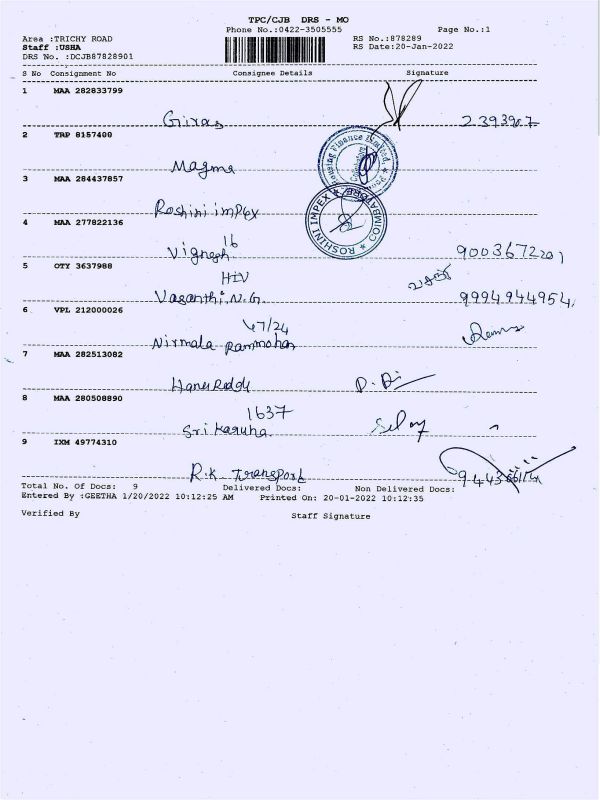 TPC/CJB DRS - MO
Phone No.:0422-3505555 Page No.:1
Area :TRICHY ROAD RS No.:878289
Staff :USHA RS Date:20-Jan-2022
DRS No. :DCJB87828901
S No Consignment No Consignee Details Signature
1 MAA 282833799
Giras 2393907
2 TRP 8157400
Magma
Housing Finance Limited
3 MAA 284437857
Roshini impex
ROSHINI IMPEX ★ COIMBATORE ★
4 MAA 277822136
16
Vignesh 9003672201
5 OTY 3637988
HIV
Vasanthi.N.G. வசந்தி 9994944954
6 VPL 212000026
47/24
Nirmala Rammohan
7 MAA 282513082
Hanu Reddy D.Di
8 MAA 280508890
1637
Sri Karuna Selay
9 IXM 49774310
R.K Transport
Total No. Of Docs: 9 Delivered Docs: Non Delivered Docs:
Entered By :GEETHA 1/20/2022 10:12:25 AM Printed On: 20-01-2022 10:12:35
Verified By Staff Signature